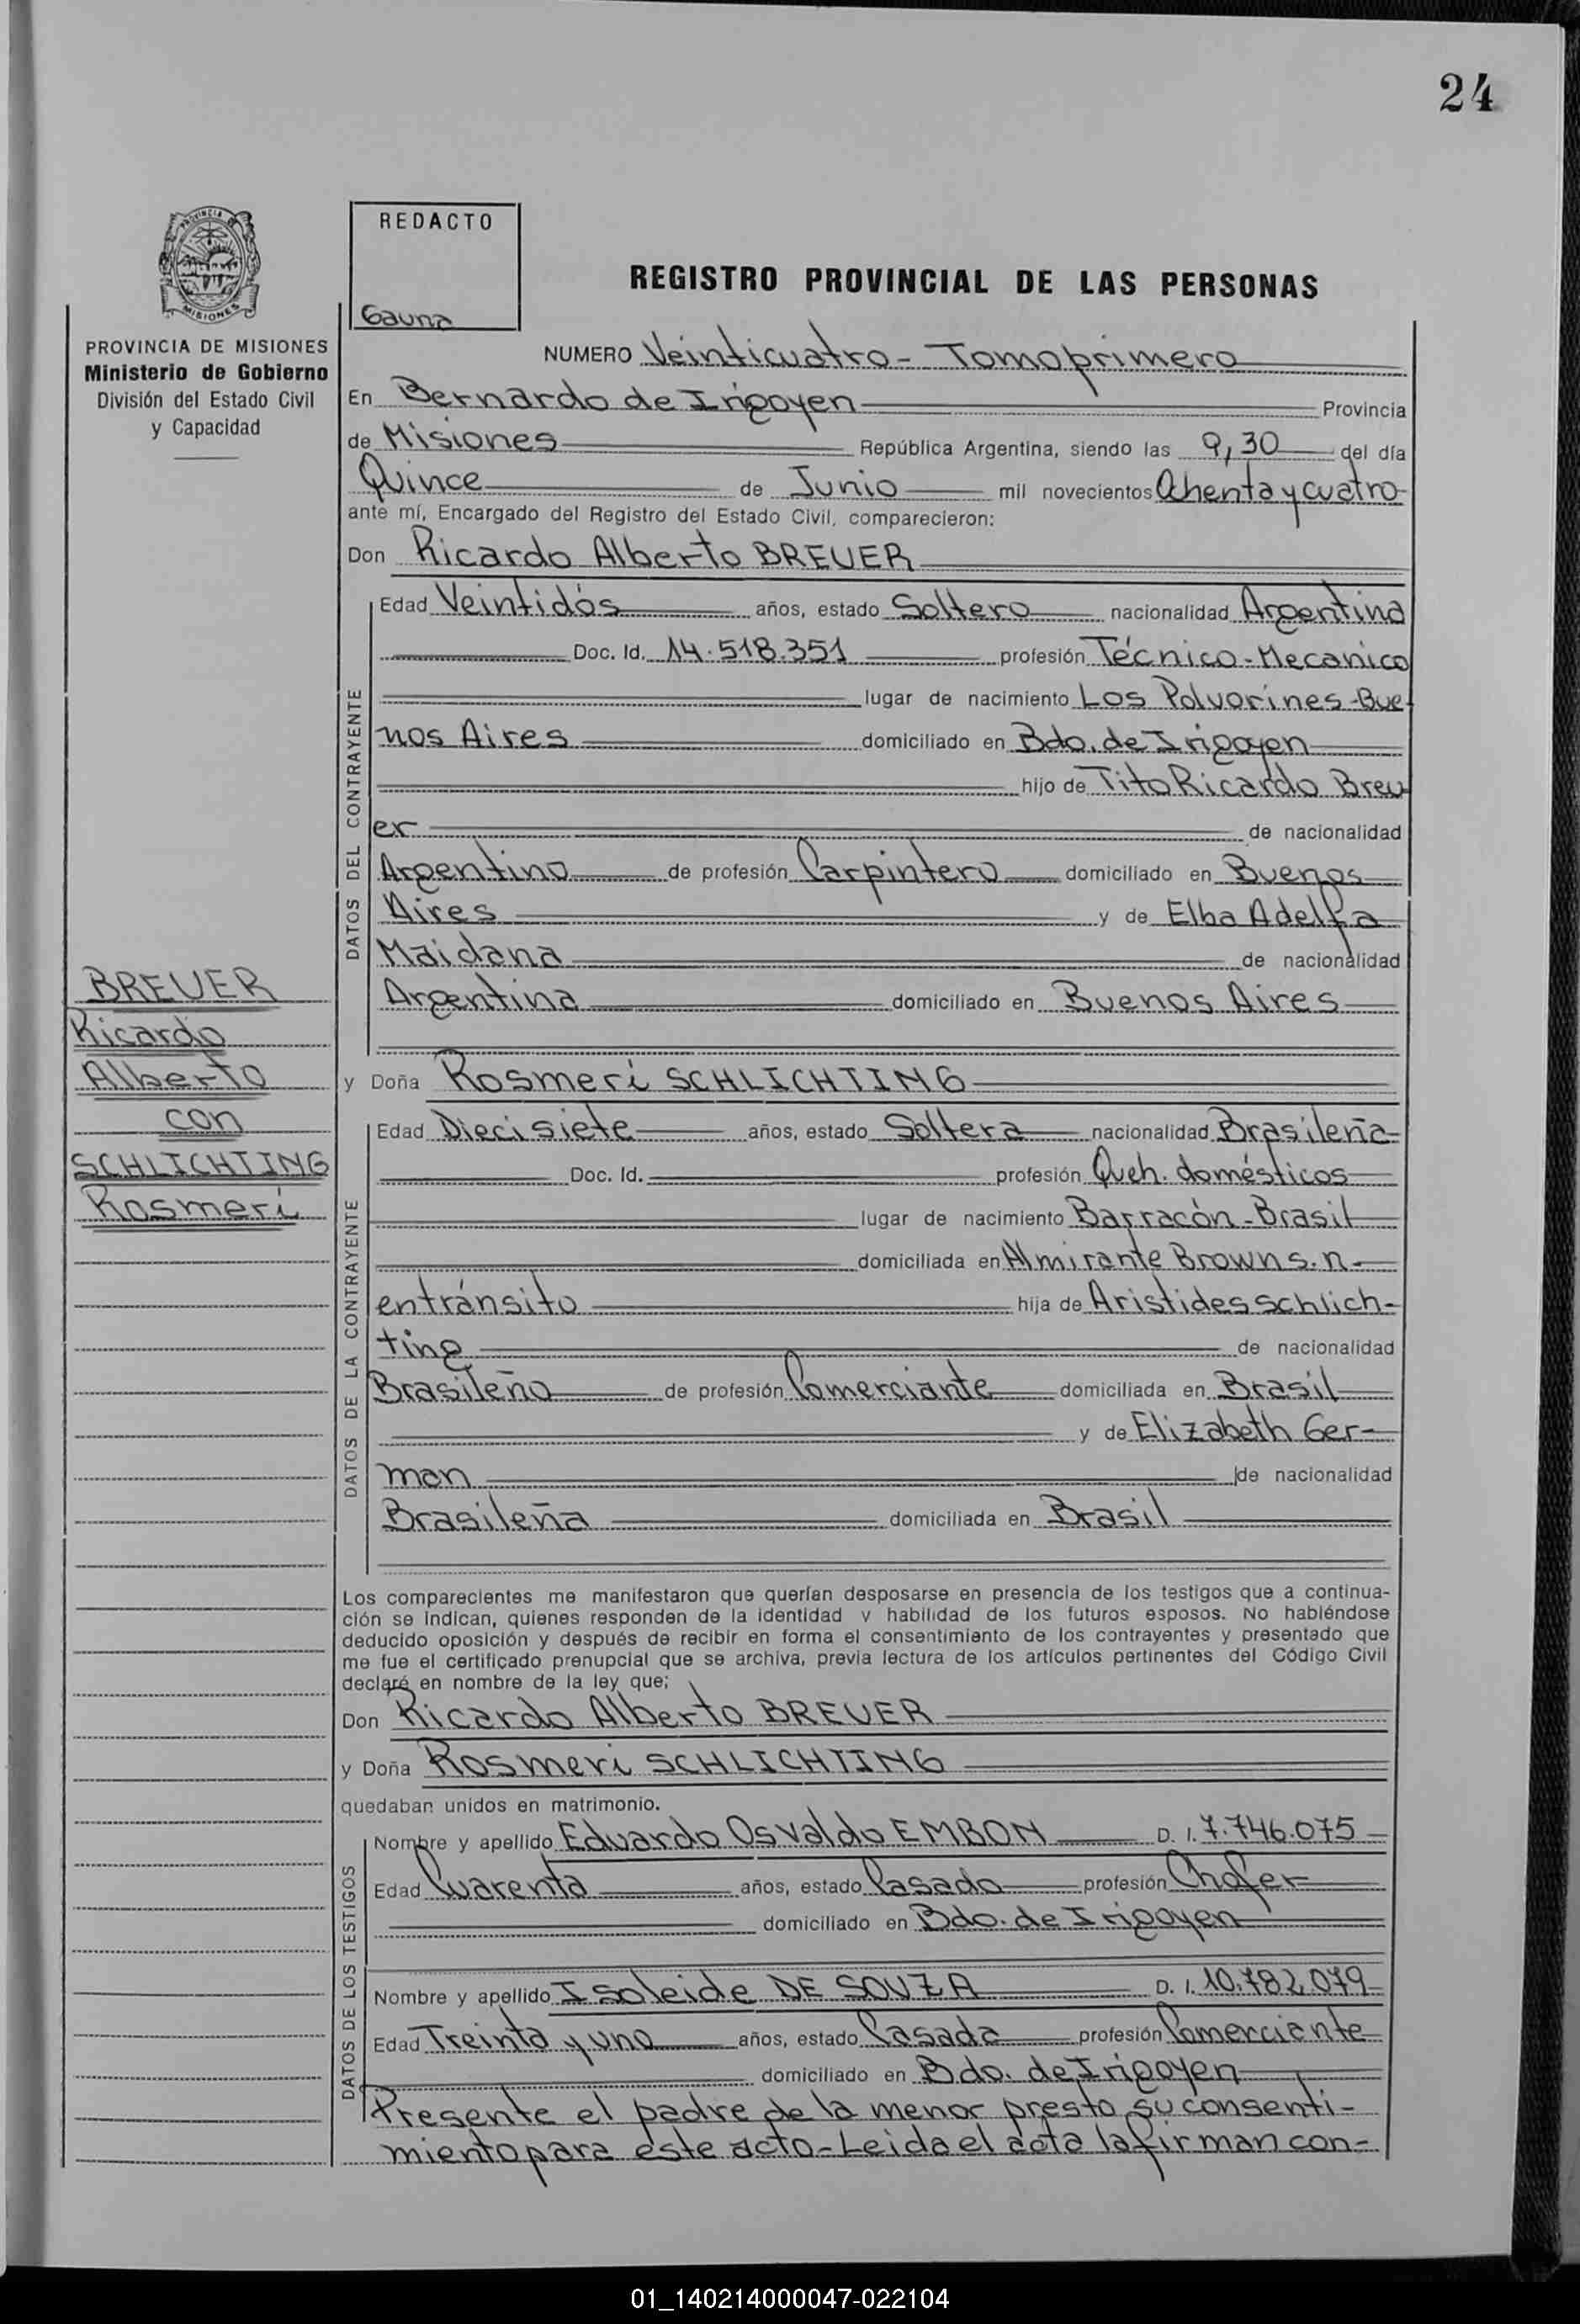 24
PROVINCIA DE
MISIONES
REDACTO
Gauna
REGISTRO PROVINCIAL DE LAS PERSONAS
PROVINCIA DE MISIONES
Ministerio de Gobierno
División del Estado Civil
y Capacidad
NUMERO Veinticuatro - Tomo primero
En Bernardo de Irigoyen Provincia
de Misiones República Argentina, siendo las 9,30 del día
Quince de Junio mil novecientos Ochenta y cuatro
ante mí, Encargado del Registro del Estado Civil, comparecieron:
Don Ricardo Alberto BREUER
DATOS DEL CONTRAYENTE
Edad Veintidós años, estado Soltero nacionalidad Argentina
Doc. Id. 14.518.351 profesión Técnico-Mecanico
lugar de nacimiento Los Polvorines-Bue
nos Aires domiciliado en Bdo. de Irigoyen
hijo de Tito Ricardo Breu
er de nacionalidad
Argentino de profesión Carpintero domiciliado en Buenos
Aires y de Elba Adelfa
Maidana de nacionalidad
Argentina domiciliado en Buenos Aires
BREUER
Ricardo
Alberto
con
SCHLICHTING
Rosmeri
y Doña Rosmeri SCHLICHTING
DATOS DE LA CONTRAYENTE
Edad Diecisiete años, estado Soltera nacionalidad Brasileña
Doc. Id. profesión Queh. domésticos
lugar de nacimiento Barracón-Brasil
domiciliada en Almirante Brown s.n.
entránsito hija de Aristides Schlich-
ting de nacionalidad
Brasileño de profesión Comerciante domiciliada en Brasil
y de Elizabeth Ger-
man de nacionalidad
Brasileña domiciliada en Brasil
Los comparecientes me manifestaron que querían desposarse en presencia de los testigos que a continua-
ción se indican, quienes responden de la identidad y habilidad de los futuros esposos. No habiéndose
deducido oposición y después de recibir en forma el consentimiento de los contrayentes y presentado que
me fue el certificado prenupcial que se archiva, previa lectura de los artículos pertinentes del Código Civil
declaré en nombre de la ley que;
Don Ricardo Alberto BREUER
y Doña Rosmeri SCHLICHTING
quedaban unidos en matrimonio.
DATOS DE LOS TESTIGOS
Nombre y apellido Eduardo Osvaldo EMBON D. I. 7.746.075
Edad Cuarenta años, estado Casado profesión Chofer
domiciliado en Bdo. de Irigoyen
Nombre y apellido Isoleide DE SOUZA D. I. 10.782.079
Edad Treinta y uno años, estado Casada profesión Comerciante
domiciliado en Bdo. de Irigoyen
Presente el padre de la menor presto su consenti-
miento para este acto-Leida el acta la firman con-
01_140214000047-022104